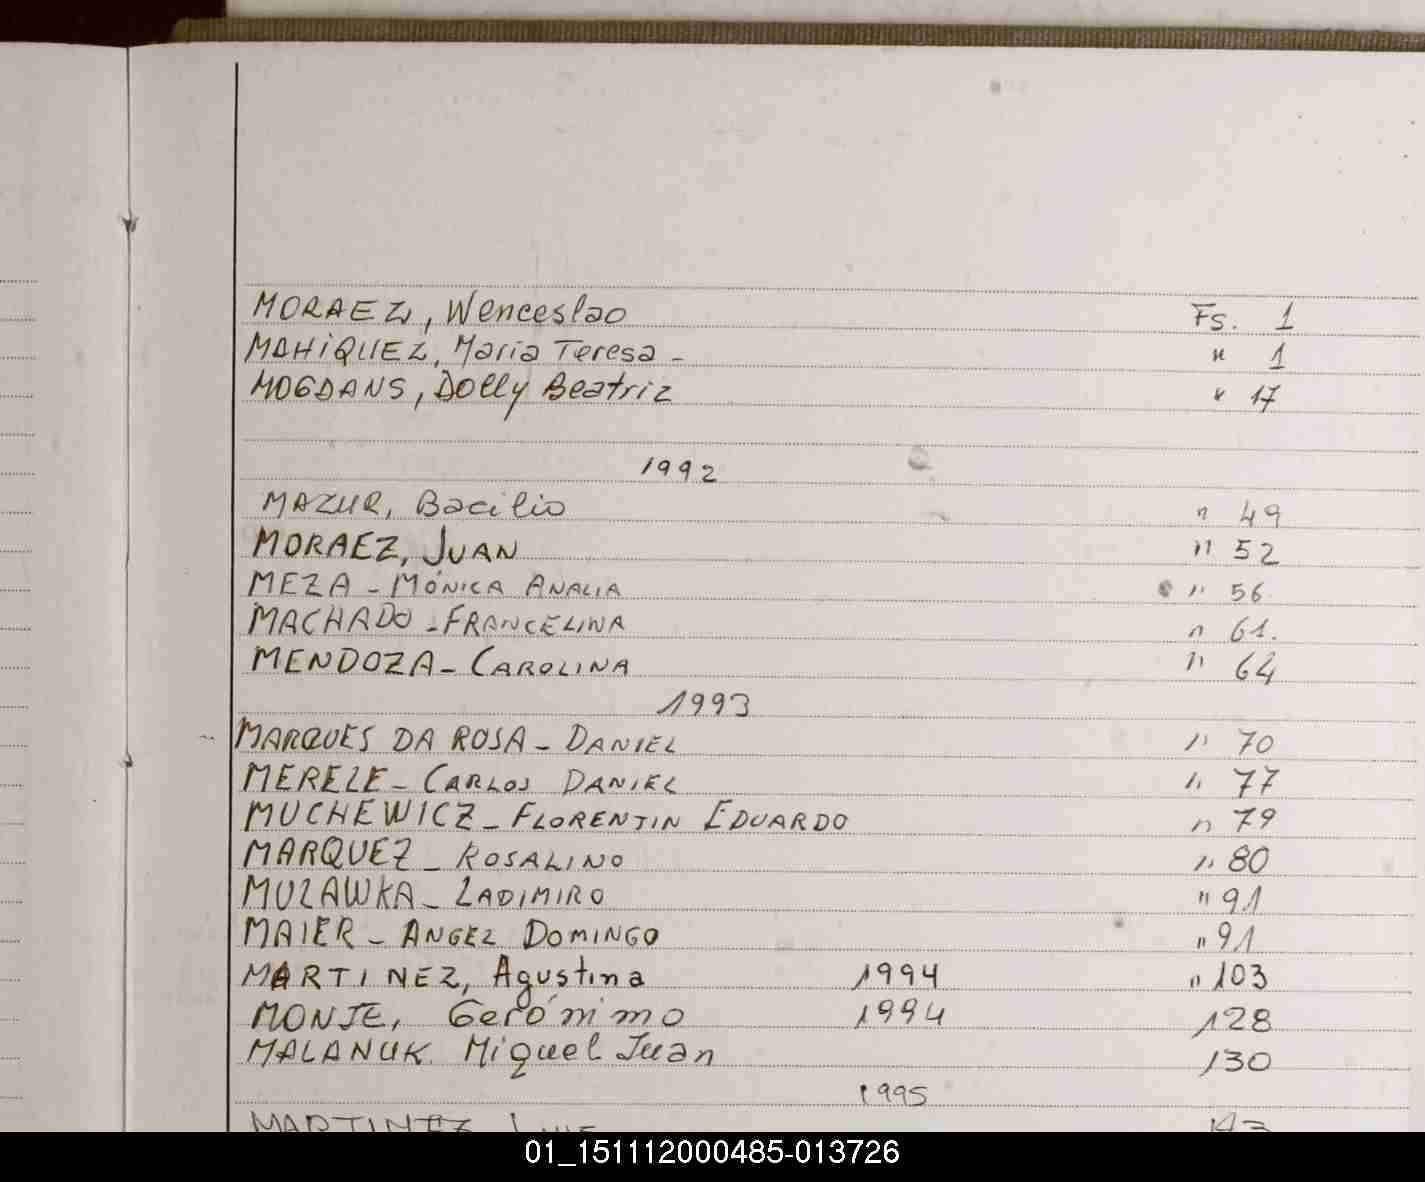 MORAEZ, Wenceslao Fs. 1
MAHiQUEZ, Maria Teresa - " 1
MOGDANS, Dolly Beatriz " 17
1992
MAZUR, Bacilio " 49
MORAEZ, JUAN " 52
MEZA - MÓNICA ANALIA " 56
MACHADO - FRANCELINA " 61.
MENDOZA - CAROLINA " 64
1993
MARQUES DA ROSA - DANIEL " 70
MERELE - CARLOS DANIEL " 77
MUCHEWICZ - FLORENTIN EDUARDO " 79
MARQUEZ - ROSALINO " 80
MULAWKA - LADIMIRO " 91
MAIER - ANGEL DOMINGO " 91
MARTINEZ, Agustina 1994 " 103
MONJE, Gerónimo 1994 128
MALANUK Miguel Juan 130
1995
MARTINEZ
01_151112000485-013726